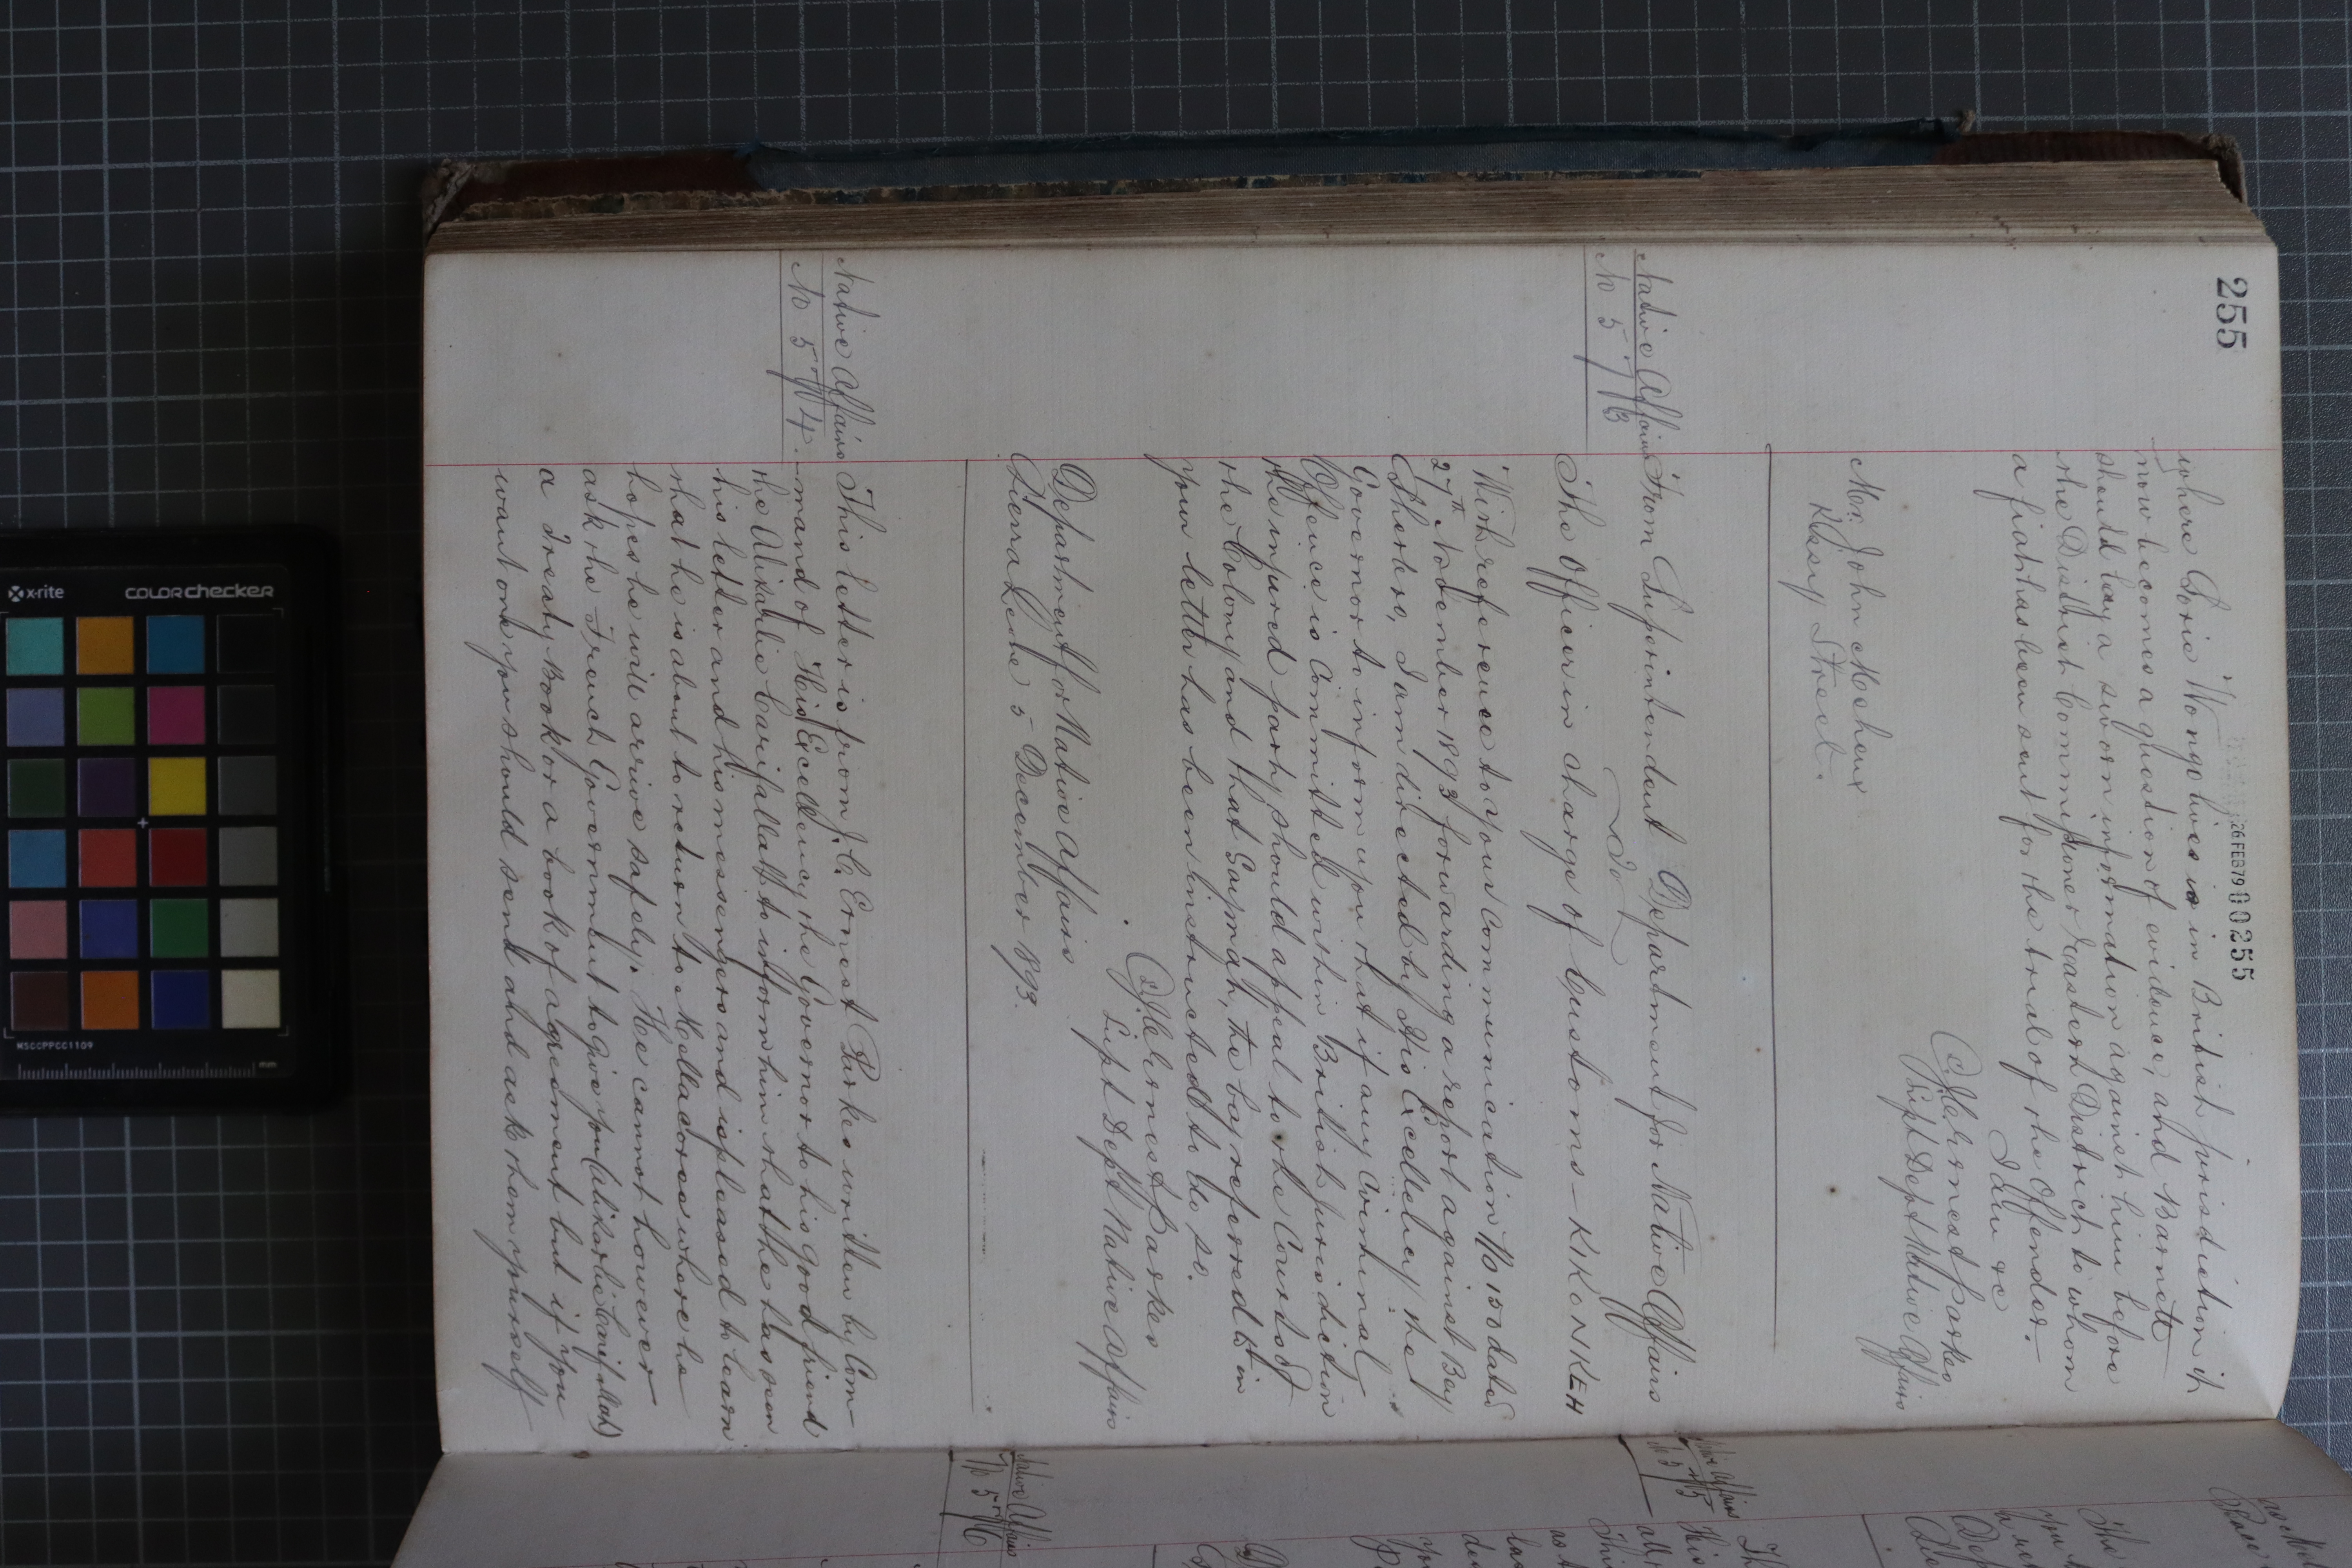 255
26 FEB 79 000255
where Sorie Wongo lives is in British jurisdiction it
now becomes a question of evidence, and Barnett
should lay a sworn information against him before
the District Commissioner Eastern District to whom
a fiat has been sent for the trial of the Offender.
I am &c
J.C. Ernest Parkes
Supt Dept Native Affairs
Mr. John Macheux
Kissy Street.
Native Affairs
No 573
From Superintendent Department for Native Affairs
To
The Officer in charge of Customs — KIKONKEH
With reference to your Communication No 150 dated
27th November 1893 forwarding a report against Bey
Sherbro, I am directed by His Excellency the
Governor to inform you that if any Criminal
Offence is Committed within British Jurisdiction
the injured party should appeal to the Courts of
the Colony and that Gaymah, the boy referred to in
your letter has been instructed to do so.
J.C. Ernest Parkes
Supt Dept Native Affairs
Department for Native Affairs
Sierra Leone 5 December 1893.
Native Affairs
No 574.
This letter is from J.C. Ernest Parkes written by Com-
mand of His Excellency the Governor to his good friend
the Alikarlie to inform him that he has seen
his letter and his messengers and is pleased to learn
that he is about to return to Mellacoree where he
hopes he will arrive safely. He cannot however
ask the French Government to give you (Alikarlie)
a Treaty Book or a book of agreement but if you
want one you should send and ask them yourself
Native Affairs
No 575
Native Affairs
No 576